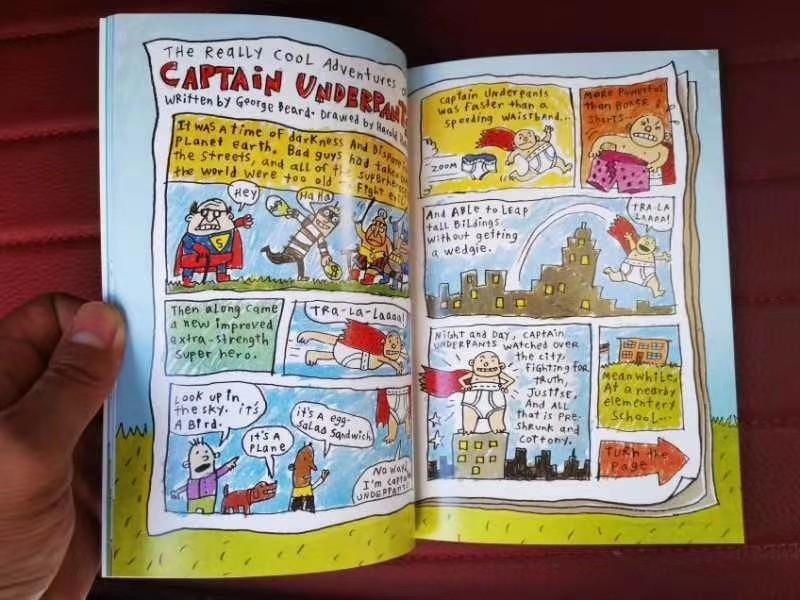 The Really Cool Adventures o
CAPTAIN UNDERPANT
Written by George Beard. Drawed by Harold
It was a time of darkness and Dispair
Planet earth. Bad guys had take
the streets, and all of the superhero
the world were too old to fight evil
Hey
HaHa
S
Then along came
a new improved
extra-strength
super hero.
TRA-LA-Laaaa!
Look up in
the sky. it's
A Bird.
It's A
PLANE
it's A egg-
salad sandwich
No way
I'm capta
UNDERPANTS
Captain Underpants
was faster than a
speeding waistband...
ZOOM
More Powerful
than Boxer
shorts...
And ABle to Leap
tall Bildings
without getting
a wedgie.
TRA-LA
LAaaa!
Night and Day, Captain
UNDERPANTS watched over
the city,
Fighting for
truth,
Justise,
And All
that is pre-
shrunk and
cottony.
Meanwhile,
At a nearby
elementery
school...
Turn the
page